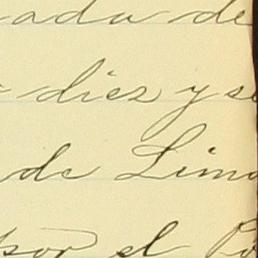 ada de
diez y se
de Lima
por el Po